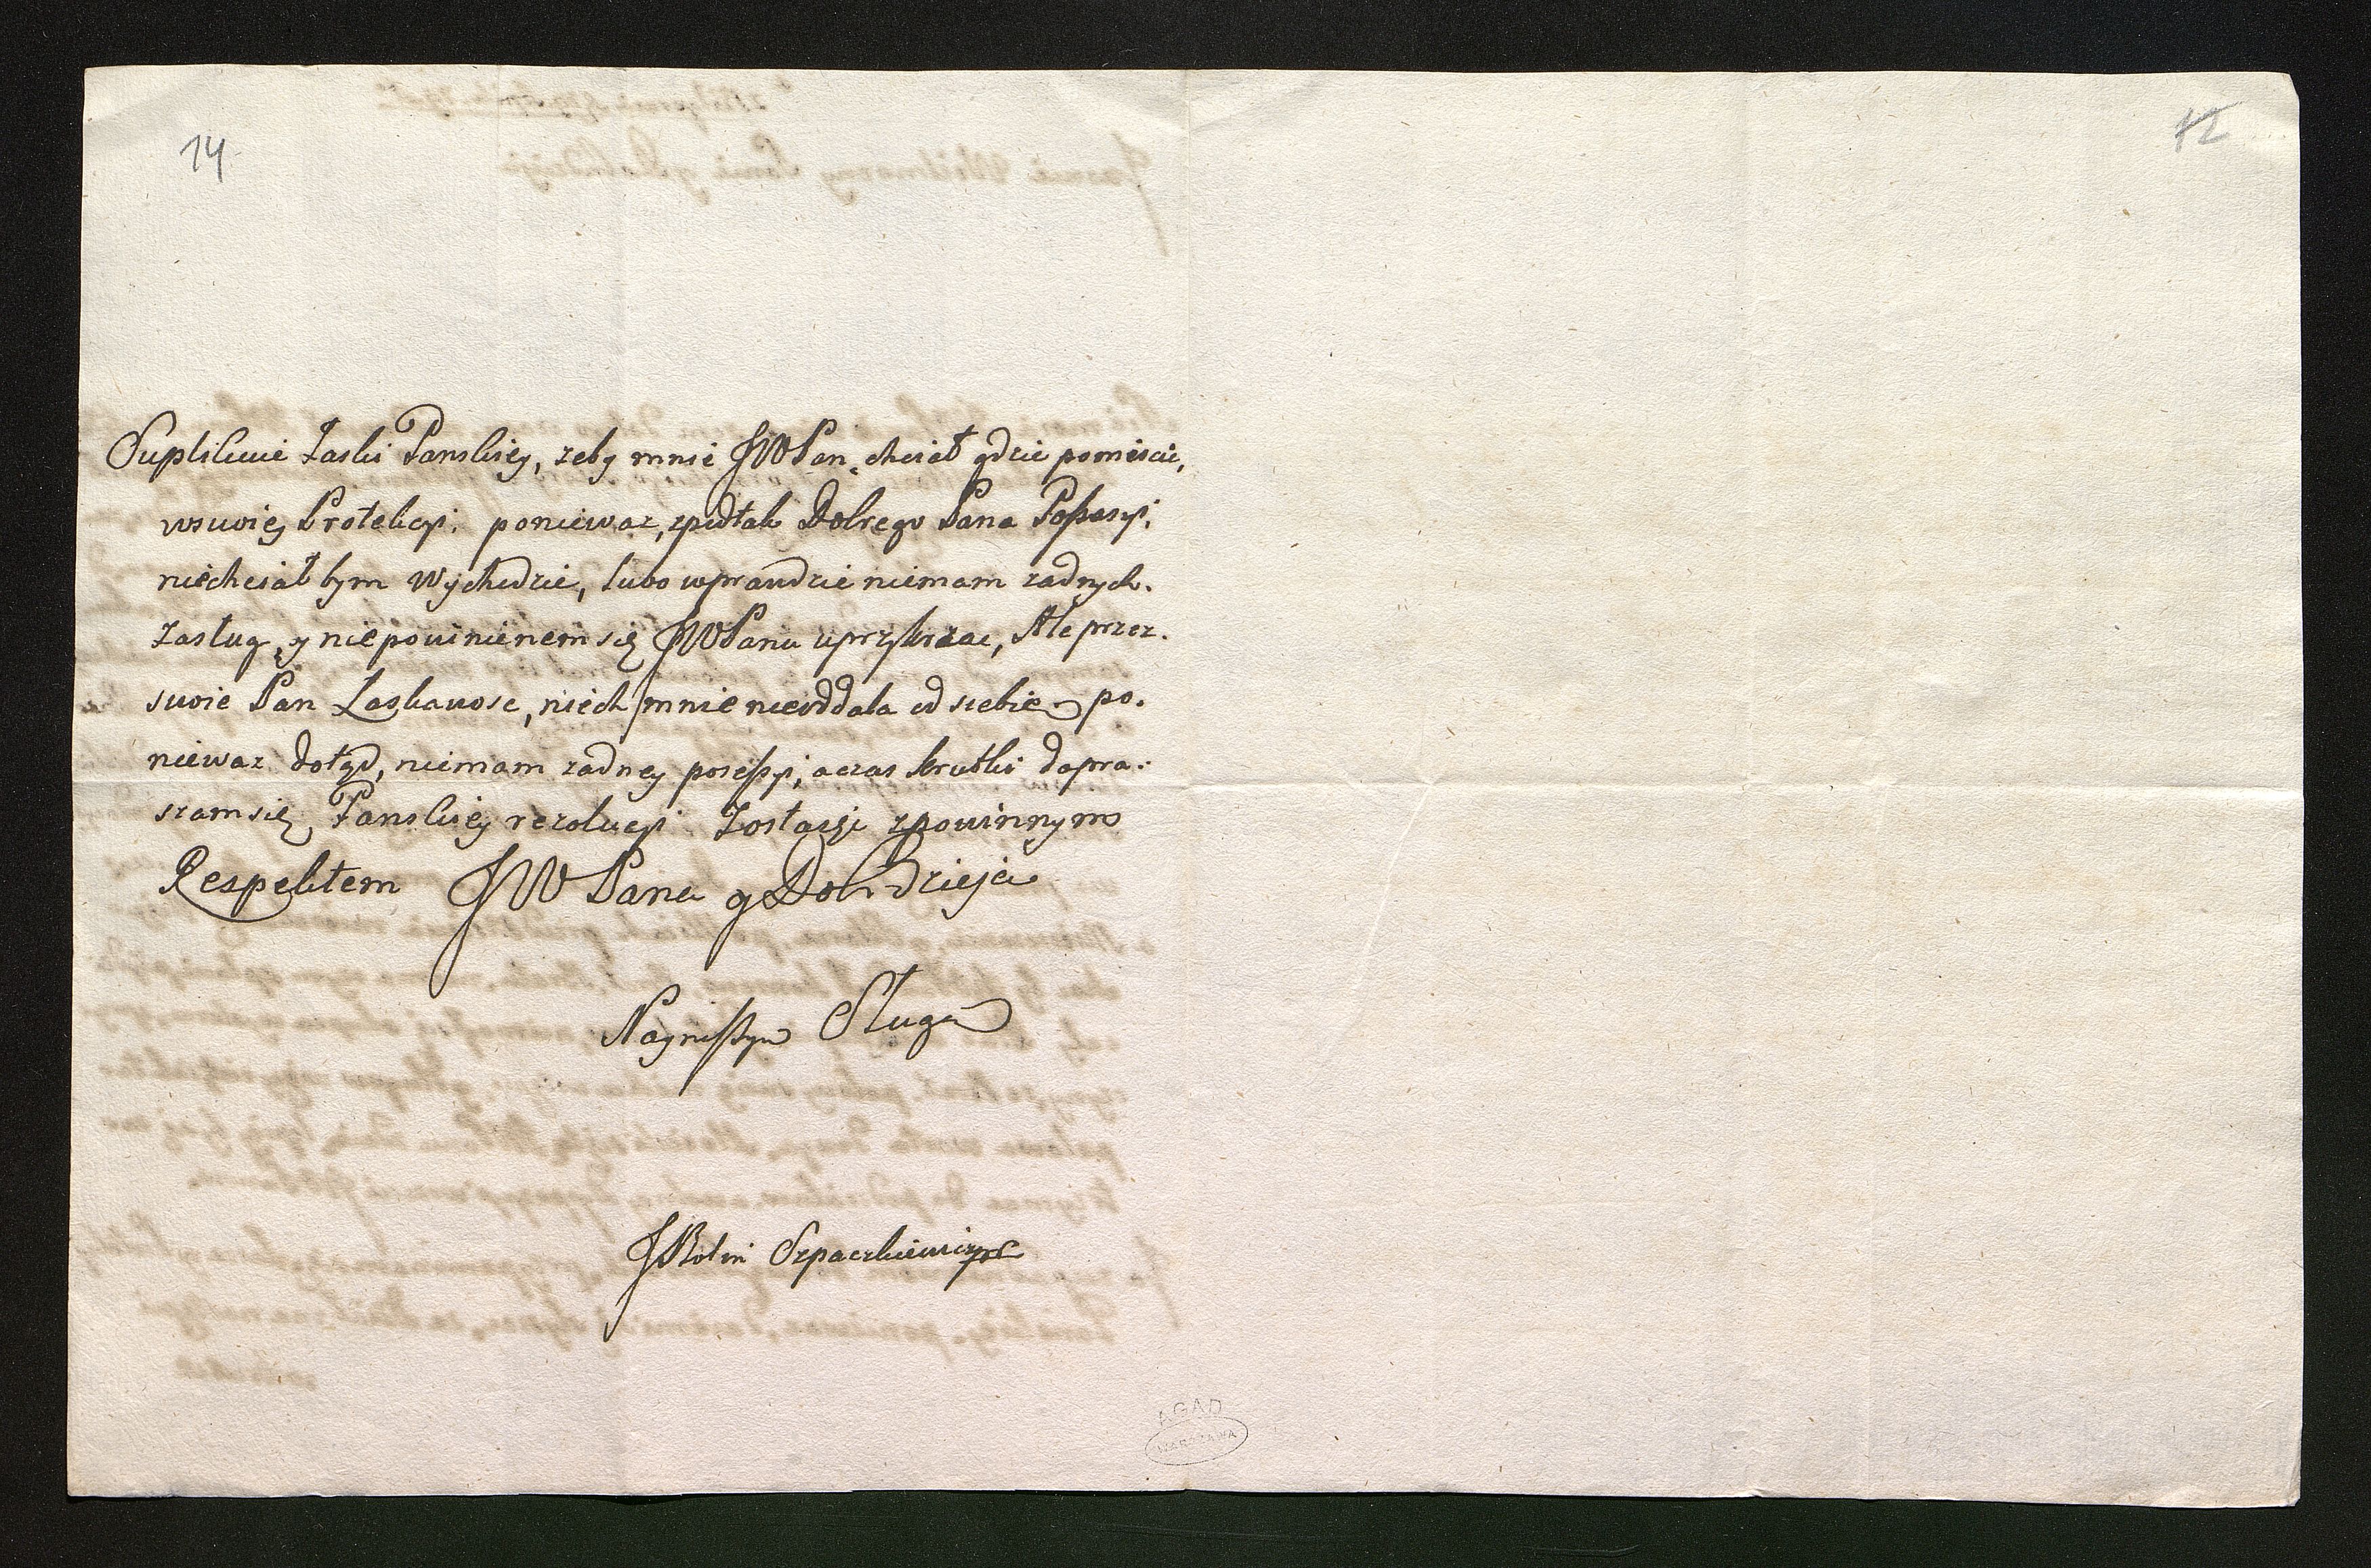 14
12
Suplikuie łaski Panskiey, zeby mnie JWPan, chciał gdzie pomiescic,
wswoiey Protekcyi. poniewaz, zpodtak Dobrego Pana Possesyi,
niechciał bym Wychodzic, lubo wprawdzie niemam zadnych.
Zasług, y niepowinienem się JWPanu uprzykrzac, Ale przez.
swoie Pan Laskawosc, niech mnie nieoddala od siebie po.
niewaz dotąd, niemam zadney posessyi, aczas krutki dopra.
szam się Panskiey rezolucyi Zostaję zpowinnym
Respektem JW Pana y Dobrdzieja
Nayniszszym Sługą
Szpaczkiewicz
AGAD
WARSZAWA